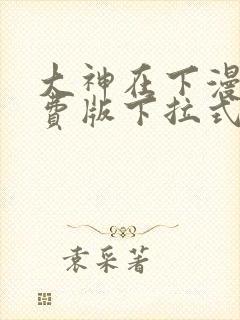 大神在下漫
费版下拉式
袁采著